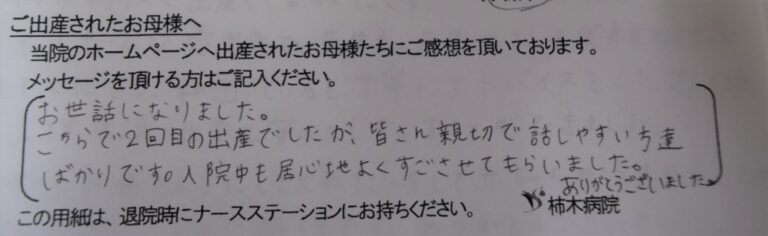 ご出産されたお母様へ
当院のホームページへ出産されたお母様たちにご感想を頂いております。
メッセージを頂ける方はご記入ください。
お世話になりました。
こちらで2回目の出産でしたが、皆さん親切で話しやすい方達
ばかりです。入院中も居心地よくすごさせてもらいました。
ありがとうございました。
この用紙は、退院時にナースステーションにお持ちください。
柿木病院